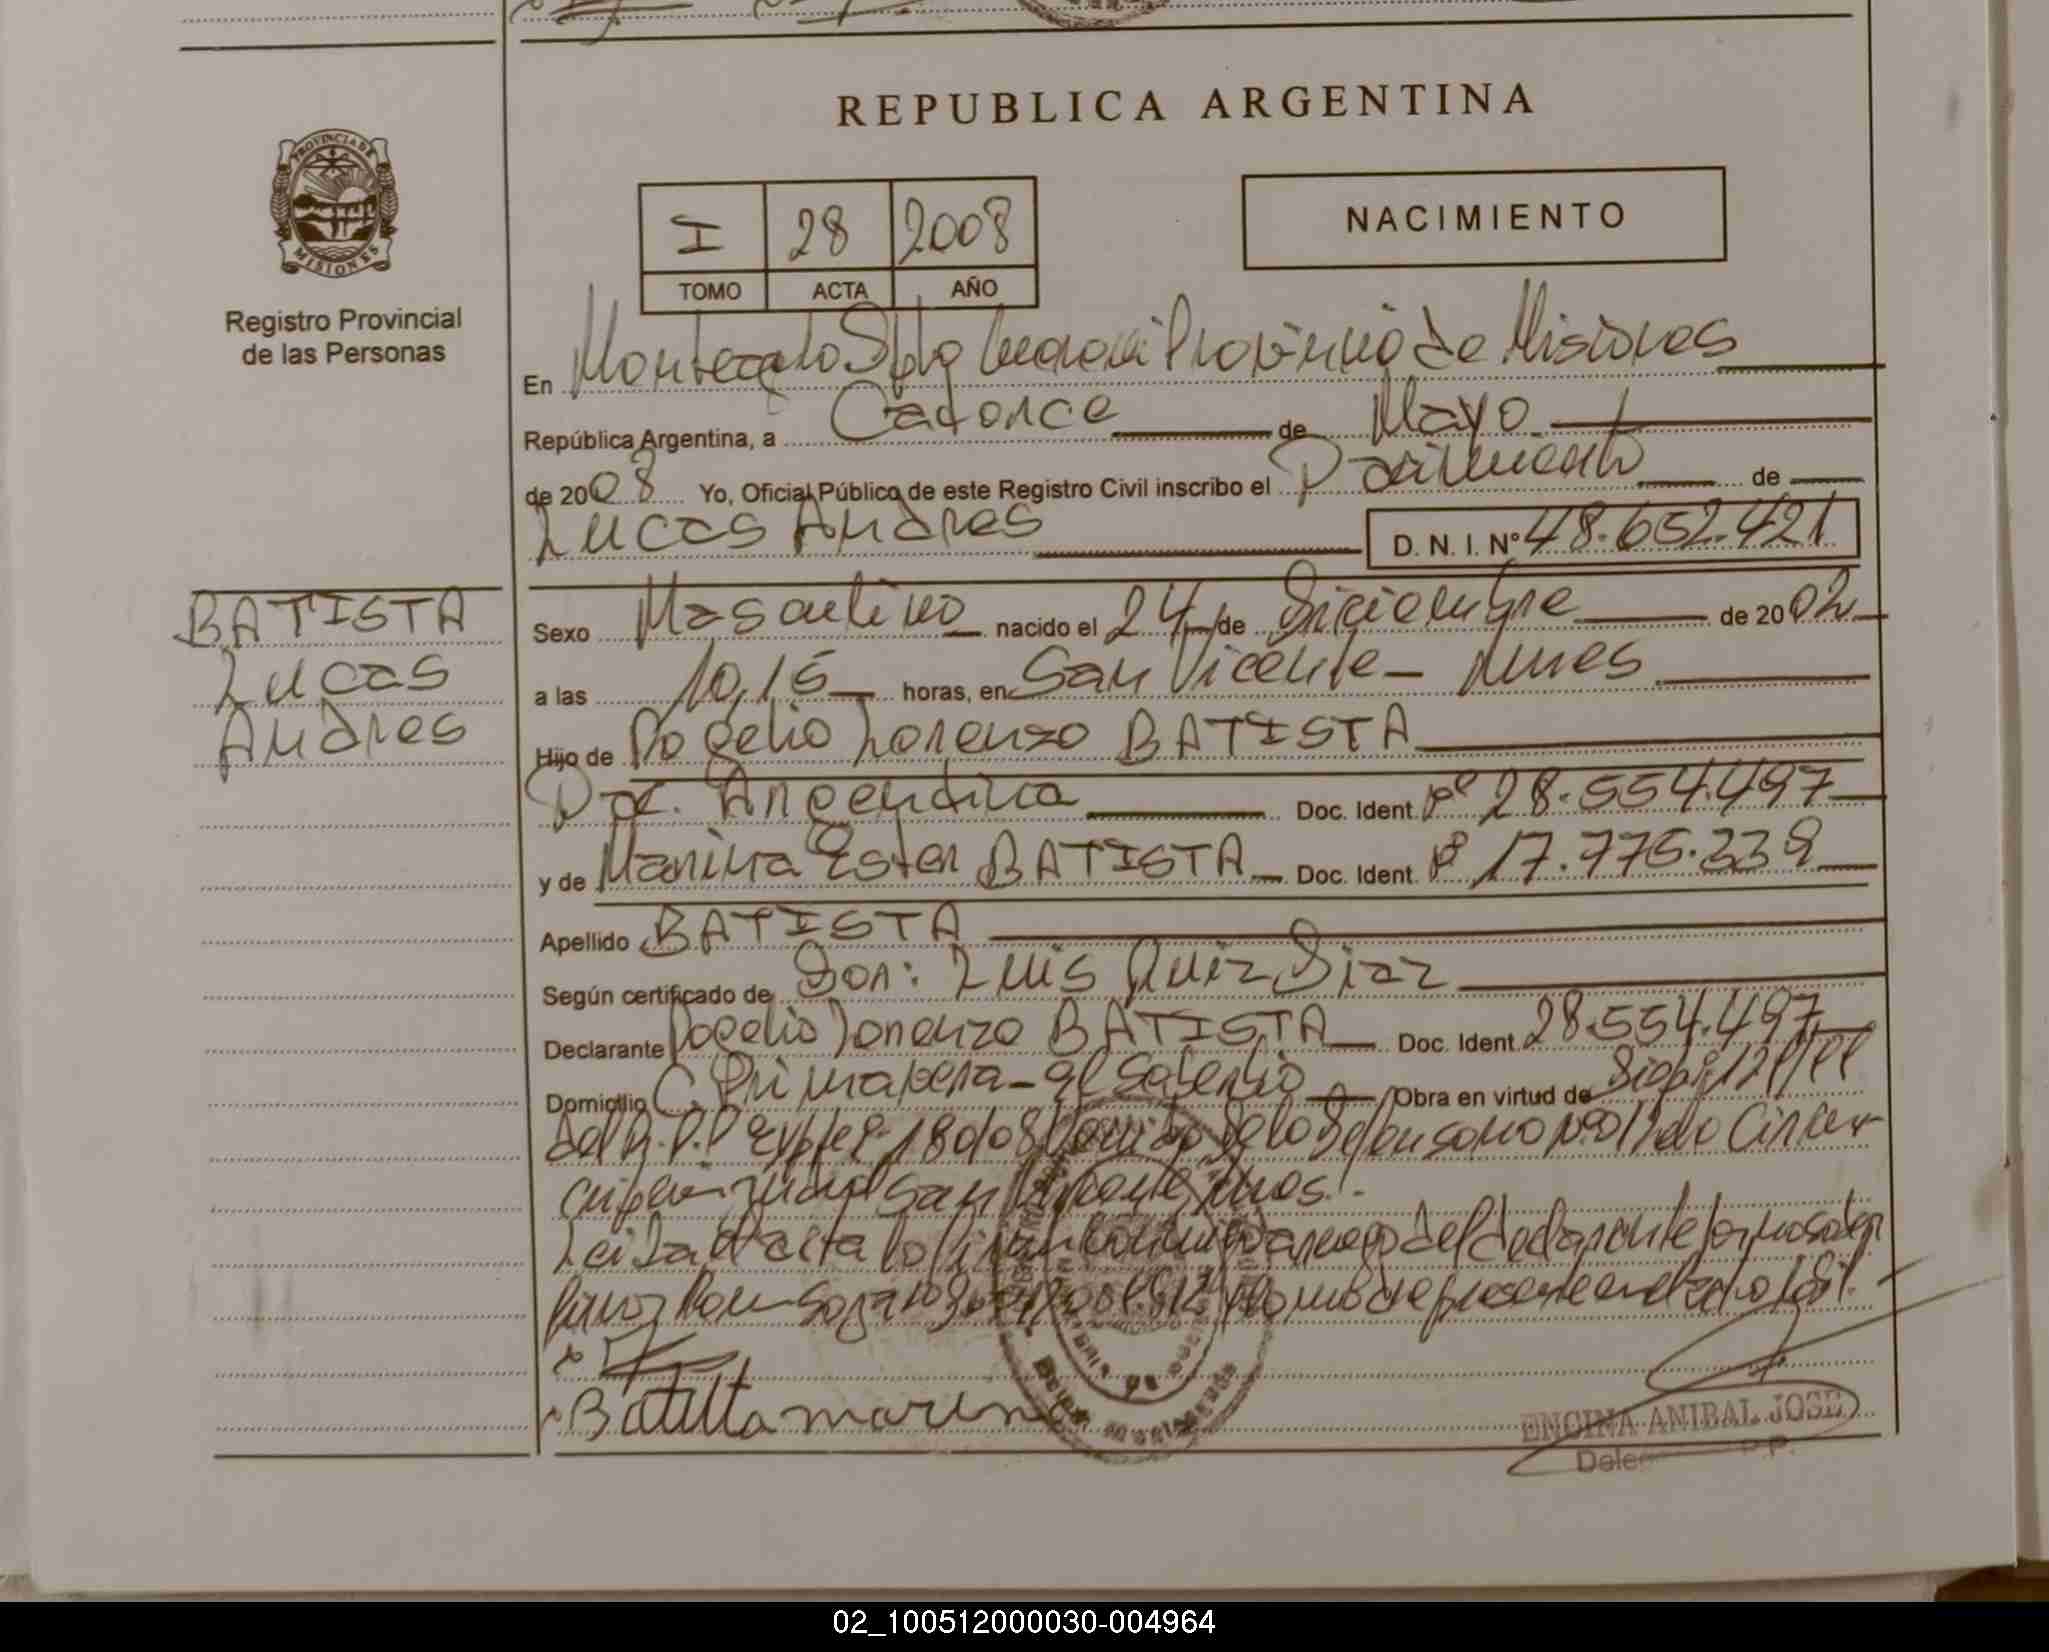 REPUBLICA ARGENTINA
PROVINCIA DE
MISIONES
Registro Provincial
de las Personas
I 28 2008
TOMO ACTA AÑO
NACIMIENTO
En Montecarlo Dpto Provincia de Misiones
República Argentina, a Catorce de Mayo
de 2008 Yo, Oficial Público de este Registro Civil inscribo el Nacimiento de
Lucas Andres D. N. I. Nº 48.652.421
BATISTA
Lucas
Andres
Sexo Masculino nacido el 24 de Diciembre de 2002
a las 10,15 horas, en San Vicente - Mnes
Hijo de Rogelio Lorenzo BATISTA
Nac. Argentina Doc. Ident. Nº 28.554.497
y de Marina Ester BATISTA Doc. Ident. Nº 17.775.339
Apellido BATISTA
Según certificado de Don: Luis Ruiz Diaz
Declarante Rogelio Lorenzo BATISTA Doc. Ident. 28.554.497
Domicilio C. Primavera - El Soberbio Obra en virtud de
del R.P.P
San Vicente Mnes.-
Leida el acta la firman conmigo a ruego del declarante
Batista marina
ENCINA ANIBAL JOSE
02_100512000030-004964